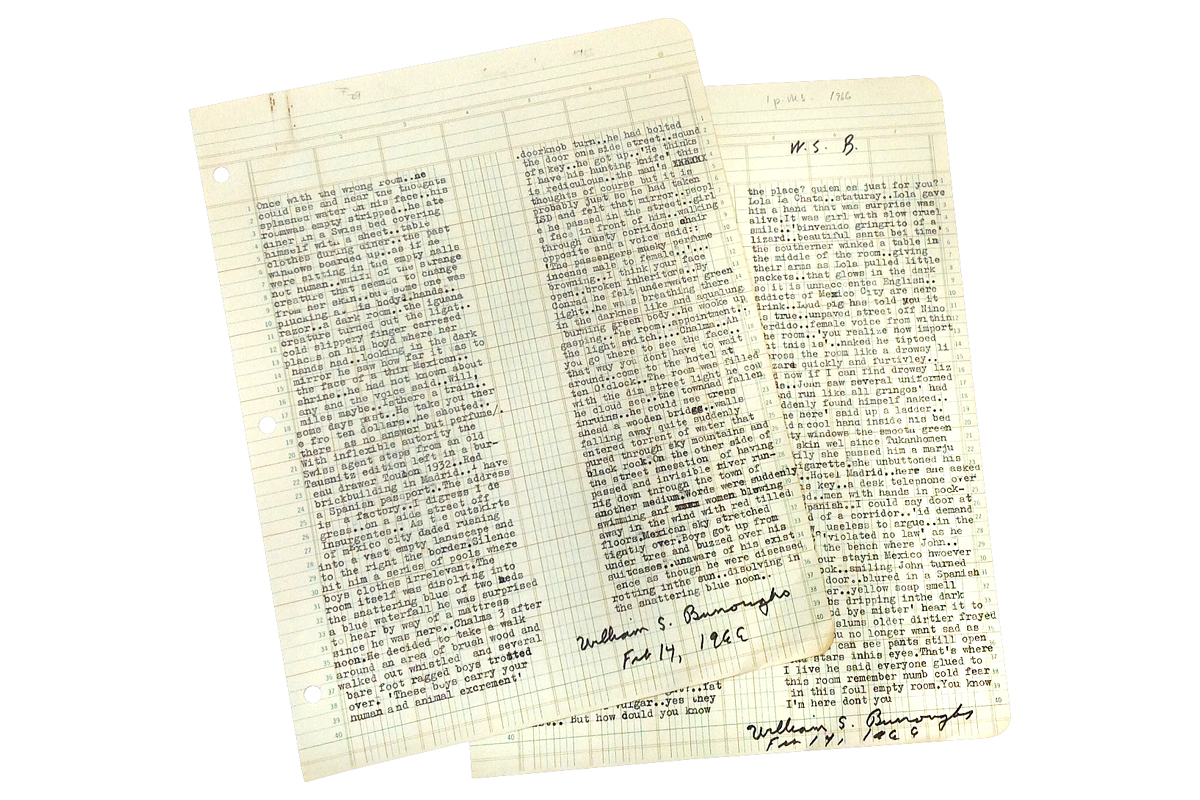 Once with the wrong room..he
could see and near the thoughts
splashed water on his face..his
roomwas empty stripped..he ate
diner in a Swiss bed covering
himself with a sheet..table
clothes during diner..the past
windows boarded up..as if he
were sitting in the empty halls
not human..whiff of the strange
creature that seemed to change
from her skin..but some one was
plucking a. is body.hands..
razor..a dark room..the iguana
creature turned out the light..
cold slippery finger carresed
places on his boyd where her
hands had..looking in the dark
mirror he saw how far it as to
the face of a thin Mexican..
shrine..he had not known about
any and the voice said..Will,
miles maybe..Isthere a train..
some days past..He take you ther
e fro ten dollars..he shouted..
there as no answer but perfume/.
With inflexible autority the
Swiss agent steps from an old
Tausnitz edition left in a bur-
eau drawer Toubon 1932..Red
brickbuilding in Madrid..I have
a Spanish passport..The address
is a factory..I digress I de
gress..on a side street off
Insurgentes.. As the outskirts
of mexico city daded rushing
into a vast empty landscape and
to the right the border.Silence
hit him a series of pools where
boys clothes irrelevant.The
room itself was disolving into
the shattering blue of two beds
a blue waterfall he was surprised
to hear by way of a mattress
since he was nere..Chalma 3 after
noon.He decided to take a walk
around an area of brush wood and
walked out whistled and several
bare foot ragged boys trotted
over. 'These boys carry your
human and animal excrement'
.doorknob turn..he had bolted
the door one side street..sound
of a key..he got up..'He thinks
I have his hunting knife' this
is rediculous..the man's XXXXXX
thoughts of course but it is
probably just so he had taken
LSD and felt that mirror..peopl
e he passed in the street..girl
s face in front of him..walking
through dusty corridors chair
opposite and a voice said::
'The passengers musky perfume
incense male to female..'....
browning..I think your face
open..broken inheritors..By
Conrad he felt underwater green
light..he was breathing there
in the darknes like and aqualung
burning green body..he wooke up
gasping..The room..appointment..
the light switch..'Chalma..Ah
you go there to see the face..
that way you dont have to wait
around..come to the hotel at
ten O'clock..The room was filled
with the dim street light he cou
he cloud see..the townnad fallen
inruins..he could see tress
ahead a wooden bridgg..walls
falling away quite suddenly
entered torrent of water that
pured through sky mountains and
black rock.On the other side of
the street snesation of having
passed and invisible river run-
nig down through the town of
another medium.Words were suddenly
swimming anf women blowing
away in the wind with red tilled
floors.Mexican sky stretched
tightly over.Boys got up from
under tree and buzzed over his
suitcases..unaware of his exist
ence as though he were diseased
rotting inthe sun..disolving in
the shattering blue noon..
William S. Burroughs
Feb 14, 1966
1 p. Ms. 1966
W. S. B.
the place? quien es just for you?
Lola La Chata..staturay..Lola gave
him a hand that was surprise was
alive.It was girl with slow cruel
smile..'binvenido gringrito of a
lizard..beautiful santa bei time'
the southerner winked a table in
the middle of the room..giving
their arms as Lola pulled little
packets..that glows in the dark
so it is unnaccented English..
addicts of Mexico City are nere
drink..Loud pig has told you it
s true..unpaved street off Nino
erdido..female voice from within
he room..'you realize now import
t this is'..naked he tiptoed
ross the room like a drowsy li
zard quickly and furtivley..
d now if I can find drowsy liz
s..John saw several uniformed
and run like all gringos' had
ddenly found himself naked..
e here' said up a ladder..
d a cool hand inside his bed
ty windows the smooth green
skin wel since Tukanhomen
ily she passed him a marju
igarette.she unbuttoned his
..Hotel Madrid..here she asked
s key..a desk telephone over
d..men with hands in pock-
panish..I could say door at
d of a corridor..'id demand
useless to argue..in the
'violated no law' as he
the bench where John..
our stayin Mexico hwoever
ook..smiling John turned
door..blured in a Spanish
er..yellow soap smell
bs dripping inthe dark
d bye mister' hear it to
slums older dirtier frayed
u no longer want sad as
can see pants still open
nd stars inhis eyes.That's where
I live he said everyone glued to
this room remember numb cold fear
in this foul empty room.You know
I'm here dont you
..fat
vulgar..yes they
But how dould you know
William S. Burroughs
Feb 14, 1966